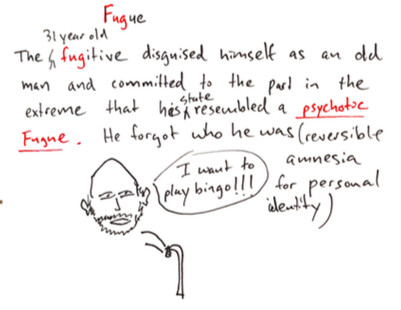 Fugue
31 year old
The fugitive disguised himself as an old
man and committed to the part in the
state
extreme that his resembled a psychotic
Fugue. He forgot who he was (reversible
amnesia
for personal
identity)
I want to
play bingo!!!